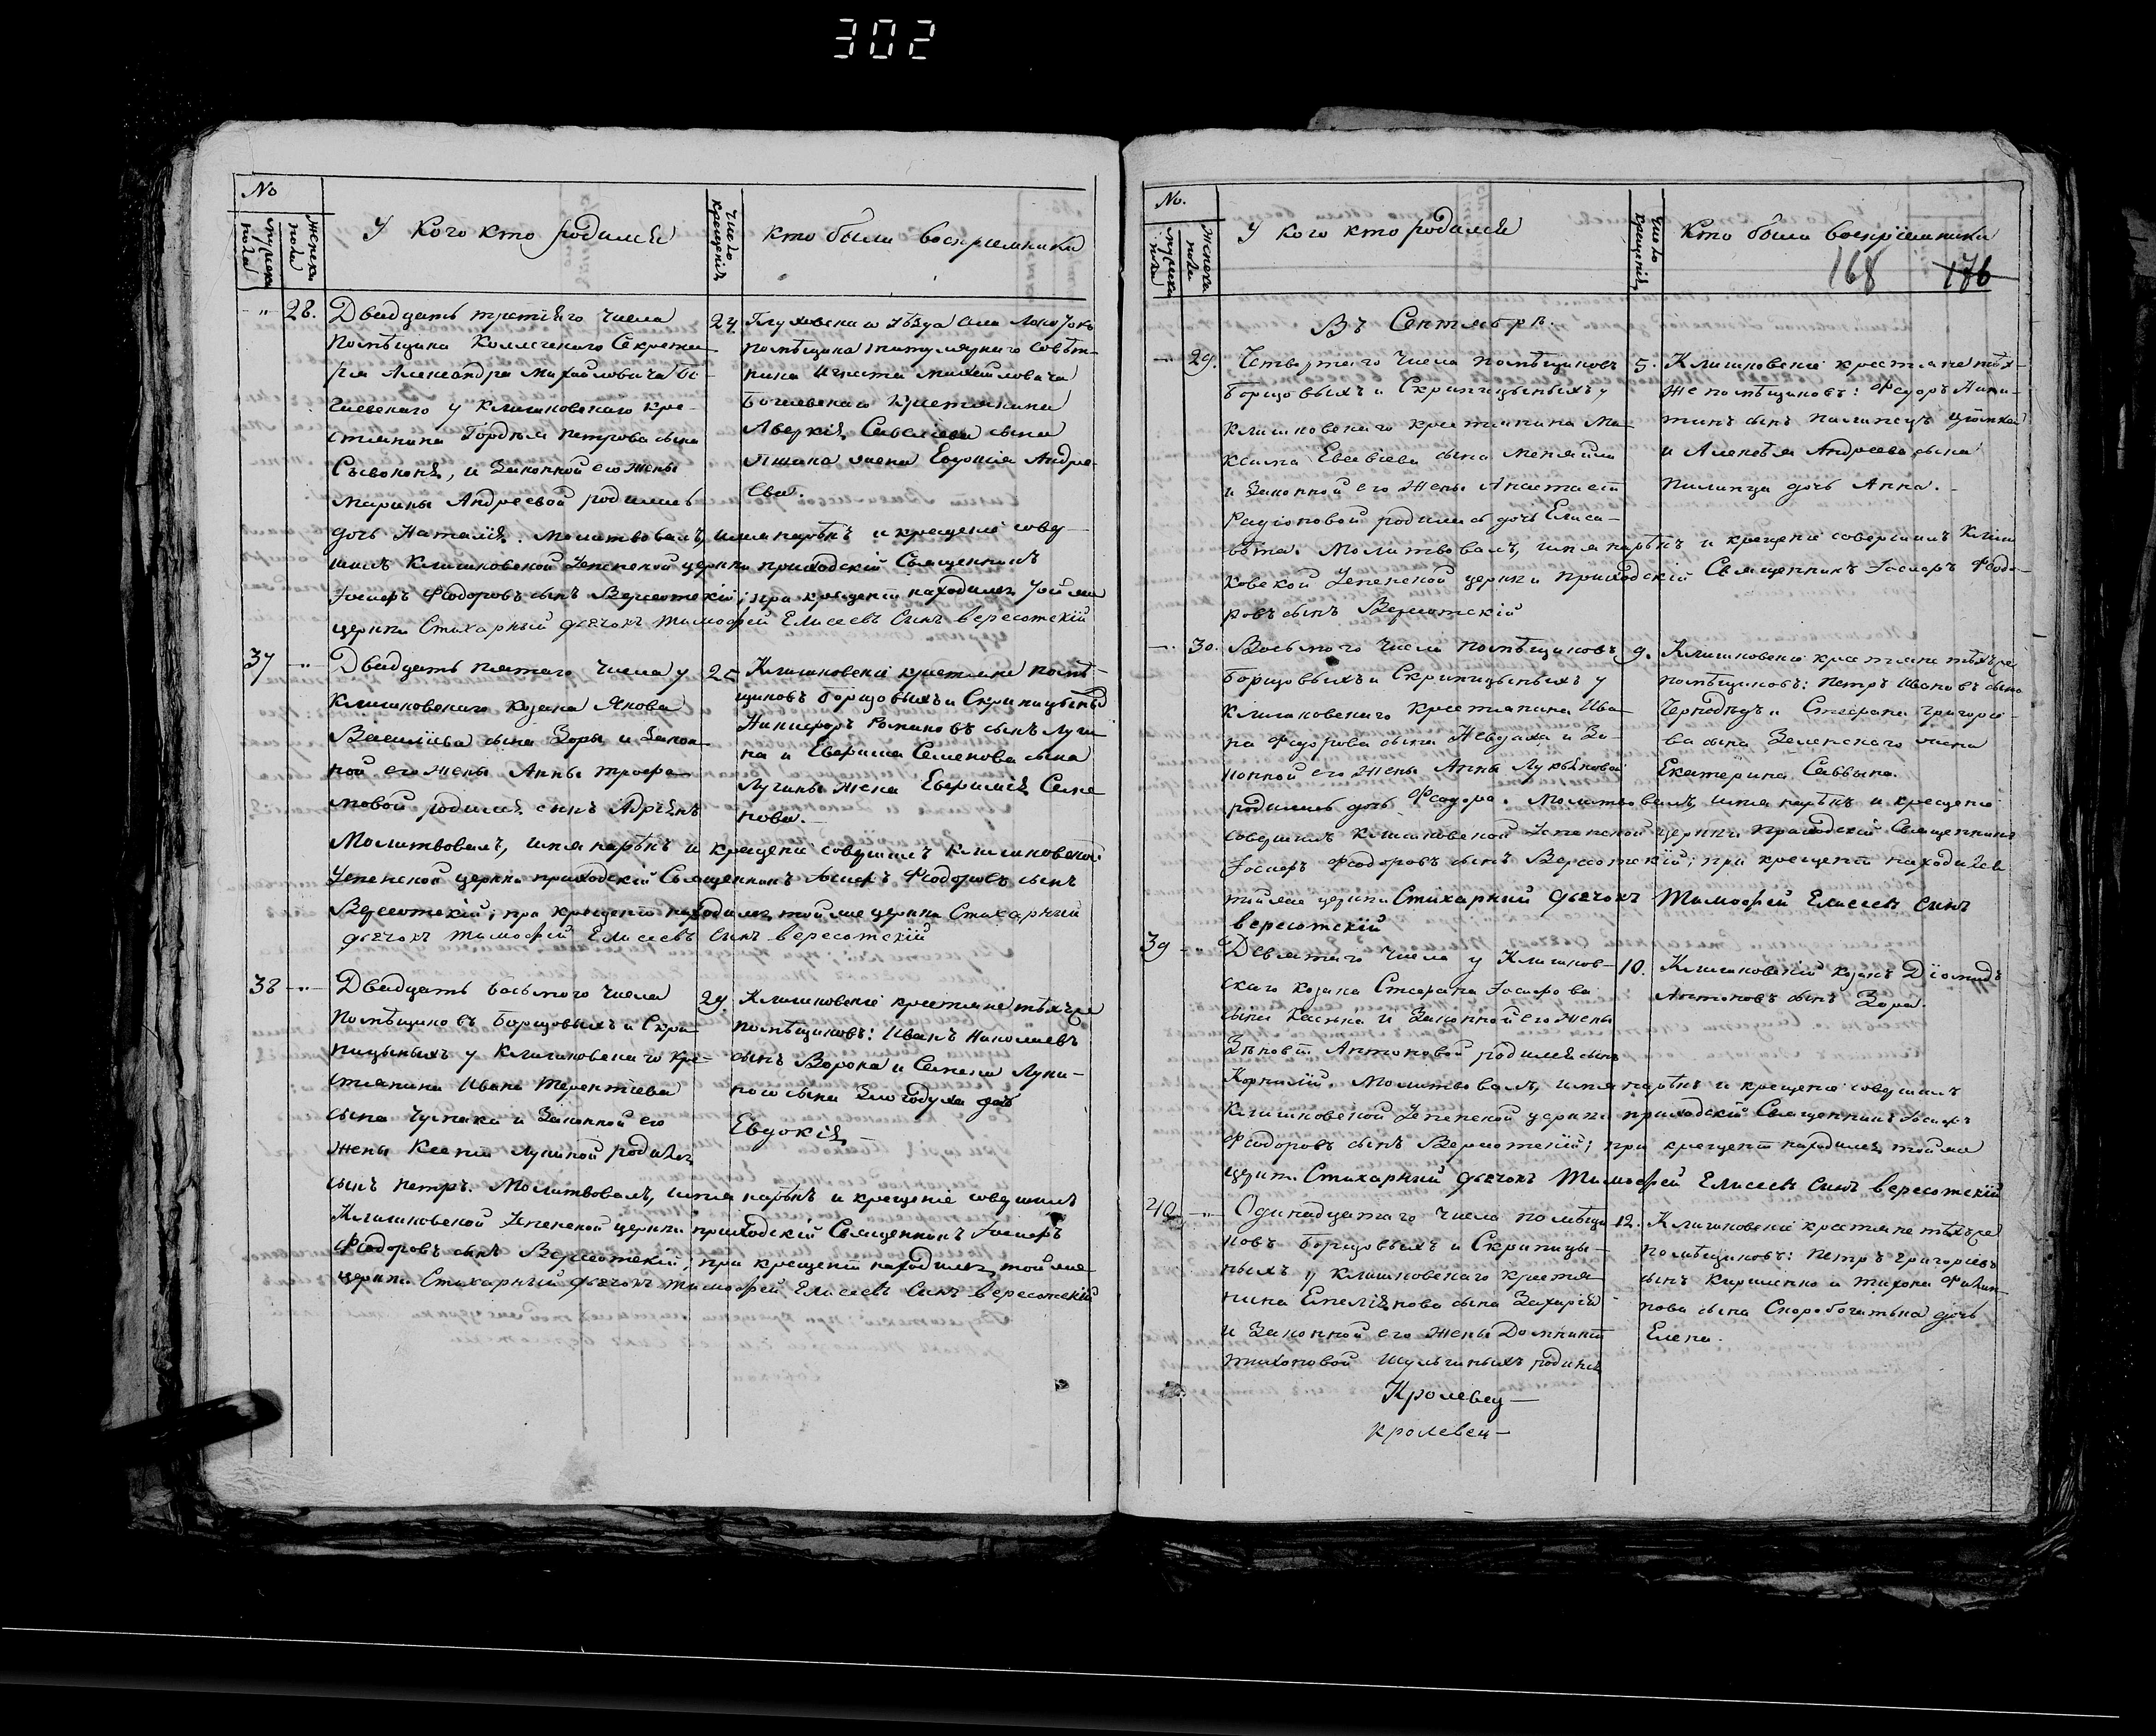 302
No
мужеска пола
женска пола
У кого кто родился
число крещенія
кто были воспріемники
" 28.
Двадцать третяго числа
помѣщика Коллежскаго Секрета-
ря Александра Михайловича
у Клишковскаго кре-
стянина Гордѣя Петрова сына
и законной его жены
Марины Андреевой родилась
дочь Наталія. Молитвовалъ, имя нарѣкъ и крещеніе совер-
шилъ Клишковской Успенской церкви приходскій Священникъ
Іосифъ Феодоровъ сынъ Вересотскій; при крещеніи находился той же
церкви Стихарный дьячокъ Тимофей Елисеевъ Синъ вересотскій
24. Глуховскаго уѣзда села
помѣщика титулярнаго совѣт-
ника Михайловича
крестянина
Аверкія Савеліева сына
жена Евдокія Андре-
ева.
37 "
Двадцать пятаго числа у
Клишковскаго козака Якова
Василіева сына Зоры и закон-
ной его жены Анны Трофи-
мовой родился сынъ Адріянъ
Молитвовалъ, имя нарѣкъ и крещеніе совершилъ Клишковской
Успенской церкви приходскій Священникъ Іосифъ Феодоровъ сынъ
Вересотскій; при крещеніи находился той же церкви Стихарный
дьячокъ Тимофей Елисеевъ Синъ вересотскій
25 Клишковскіе крестяне помѣ-
щиковъ Борщовыхъ и Скрипицыныхъ
Никифоръ Романовъ сынъ Лучи-
на и Семенова сына
Лучины жена Евфимія Семе-
нова.
38 "
Двадцать восьмого числа
помѣщиковъ Борщовыхъ и Скри-
пицыныхъ у Клишковскаго кре-
стянина Ивана Терентіева
сына Чумака и законной его
жены Ксеніи Лукиной родился
сынъ Петръ. Молитвовалъ, имя нарѣкъ и крещеніе совершилъ
Клишковской Успенской церкви приходскій Священникъ Іосифъ
Феодоровъ сынъ Вересотскій; при крещеніи находился той же
церкви Стихарный дьячокъ Тимофей Елисеевъ Синъ вересотскій
29. Клишковскіе крестяне тѣхъ же
помѣщиковъ: Иванъ Николаевъ
сынъ Ворона и Семена Луки-
ного сына дочь
Евдокія
No.
мужеска пола
женска пола
У кого кто родился
число крещенія
Кто были воспріемники
168 176
Въ Сентябрѣ.
" 29.
Четвертаго числа помѣщиковъ
Борщовыхъ и Скрипицыныхъ у
Клишковскаго крестянина Ма-
ксима Евсевіева сына
и законной его жены Анастасіи
Радіоновой родилась дочь Елиса-
вѣта. Молитвовалъ, имя нарѣкъ и крещеніе совершилъ Клиш-
ковской Успенской церкви приходскій Священникъ Іосифъ Феодо-
ровъ сынъ Вересотскій
5. Клишковскіе крестяне тѣхъ
же помѣщиковъ: Федоръ Ники-
тинъ сынъ
и Алексѣя Андреева сына
дочь Анна.
" 30.
Восьмого числа помѣщиковъ
Борщовыхъ и Скрипицыныхъ у
Клишковскаго крестянина Ива-
на Федорова сына и за-
конной его жены Анны Лукьяновой
родилась дочь Феодора. Молитвовалъ, имя нарѣкъ и крещеніе
совершилъ Клишковской Успенской церкви приходскій Священникъ
Іосифъ Феодоровъ сынъ Вересотскій; при крещеніи находился
той же церкви Стихарный дьячокъ Тимофей Елисеевъ Синъ
вересотскій
9. Клишковскіе крестяне тѣхъ же
помѣщиковъ: Петръ Ивановъ сынъ
и Стефана Григорie-
ва сына Зеленского жена
Екатерина Саввина.
39 "
Девятаго числа у Клишков-
скаго козака Стефана Іосифова
сына и законной его жены
Зѣновіи Антоновой родился сынъ
Корнилій. Молитвовалъ, имя нарѣкъ и крещеніе совершилъ
Клишковской Успенской церкви приходскій Священникъ Іосифъ
Феодоровъ сынъ Вересотскій; при крещеніи находился той же
церкви Стихарный дьячокъ Тимофей Елисеевъ Синъ вересотскій
10. Клишковскій козакъ Діомидъ
Антоновъ сынъ Зора.
40 "
Одинадцатаго числа помѣщи-
ковъ Борщовыхъ и Скрипицы-
ныхъ у Клишковскаго крестя-
нина Емеліянова сына Захарія
и законной его жены Домникіи
Тихоновой Шульгиныхъ родился
12. Клишковскіе крестяне тѣхъ же
помѣщиковъ: Петръ Григоріевъ
сынъ Кириленко и Тихона Филип-
пова сына Скоробогатька дочь
Елена.
Кролевец-
кролевец-